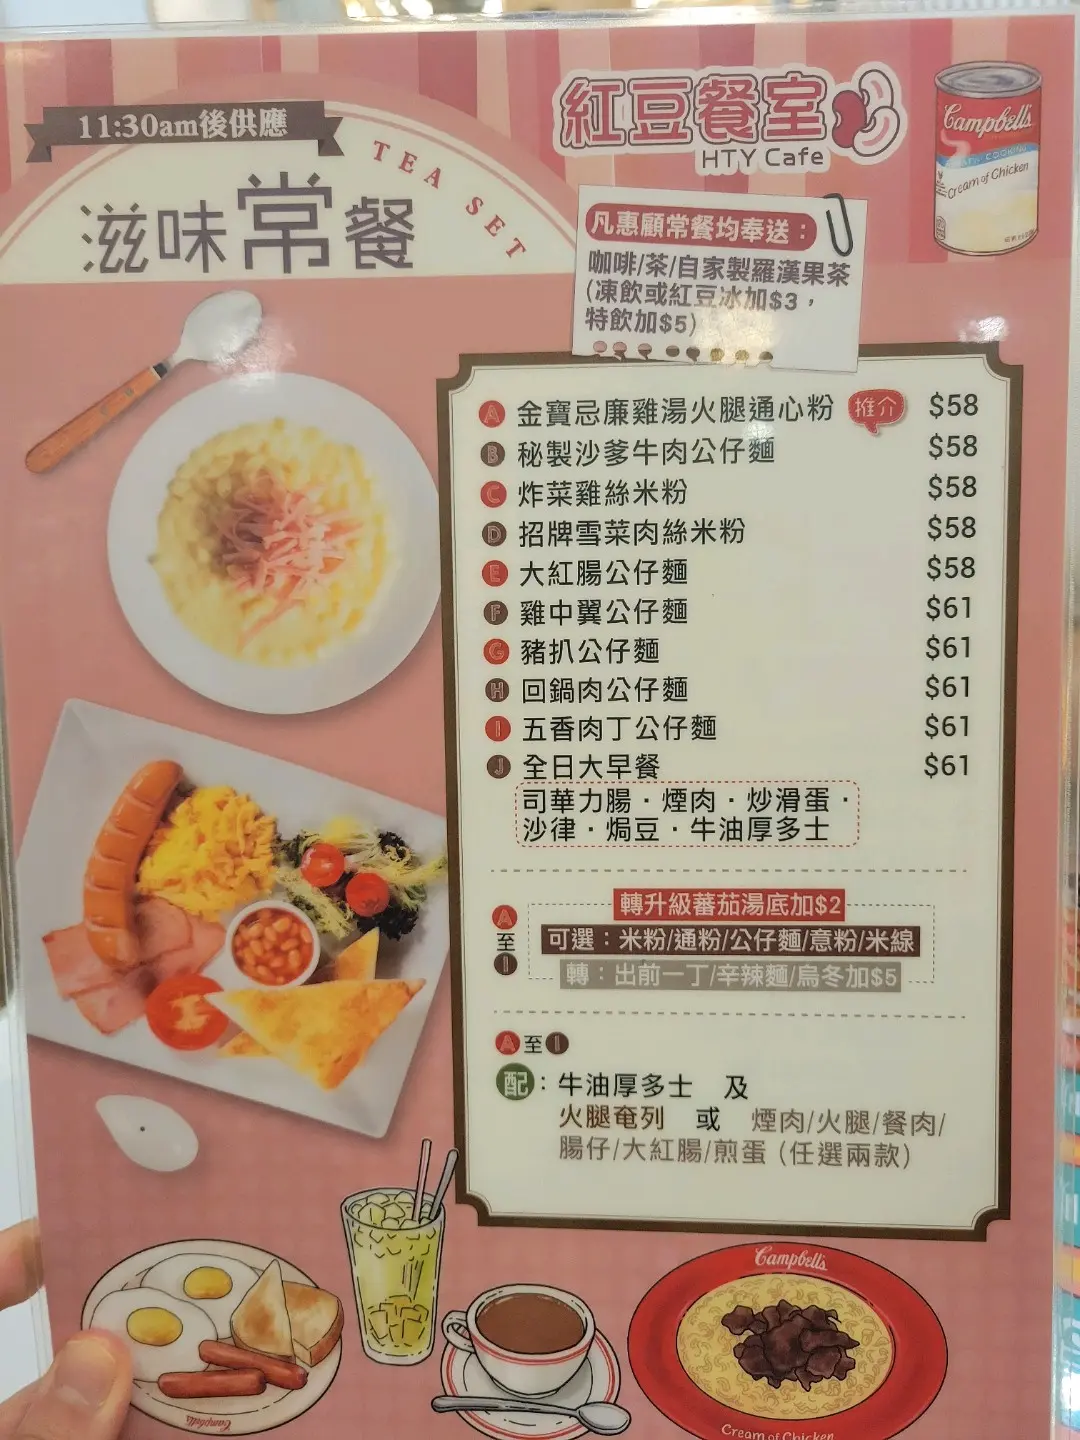 11:30am後供應
TEA SET
滋味常餐
紅豆餐室
HTY Cafe
Campbell's
Cream of Chicken
凡惠顧常餐均奉送：
咖啡/茶/自家製羅漢果茶
(凍飲或紅豆冰加$3，
特飲加$5)
A 金寶忌廉雞湯火腿通心粉 推介 $58
B 秘製沙爹牛肉公仔麵 $58
C 炸菜雞絲米粉 $58
D 招牌雪菜肉絲米粉 $58
E 大紅腸公仔麵 $58
F 雞中翼公仔麵 $61
G 豬扒公仔麵 $61
H 回鍋肉公仔麵 $61
I 五香肉丁公仔麵 $61
J 全日大早餐 $61
司華力腸·煙肉·炒滑蛋·
沙律·焗豆·牛油厚多士
A至I
轉升級蕃茄湯底加$2
可選：米粉/通粉/公仔麵/意粉/米線
轉：出前一丁/辛辣麵/烏冬加$5
A至I
配：牛油厚多士 及
火腿奄列 或 煙肉/火腿/餐肉/
腸仔/大紅腸/煎蛋 (任選兩款)
Campbell's
Campbell's
Cream of Chicken